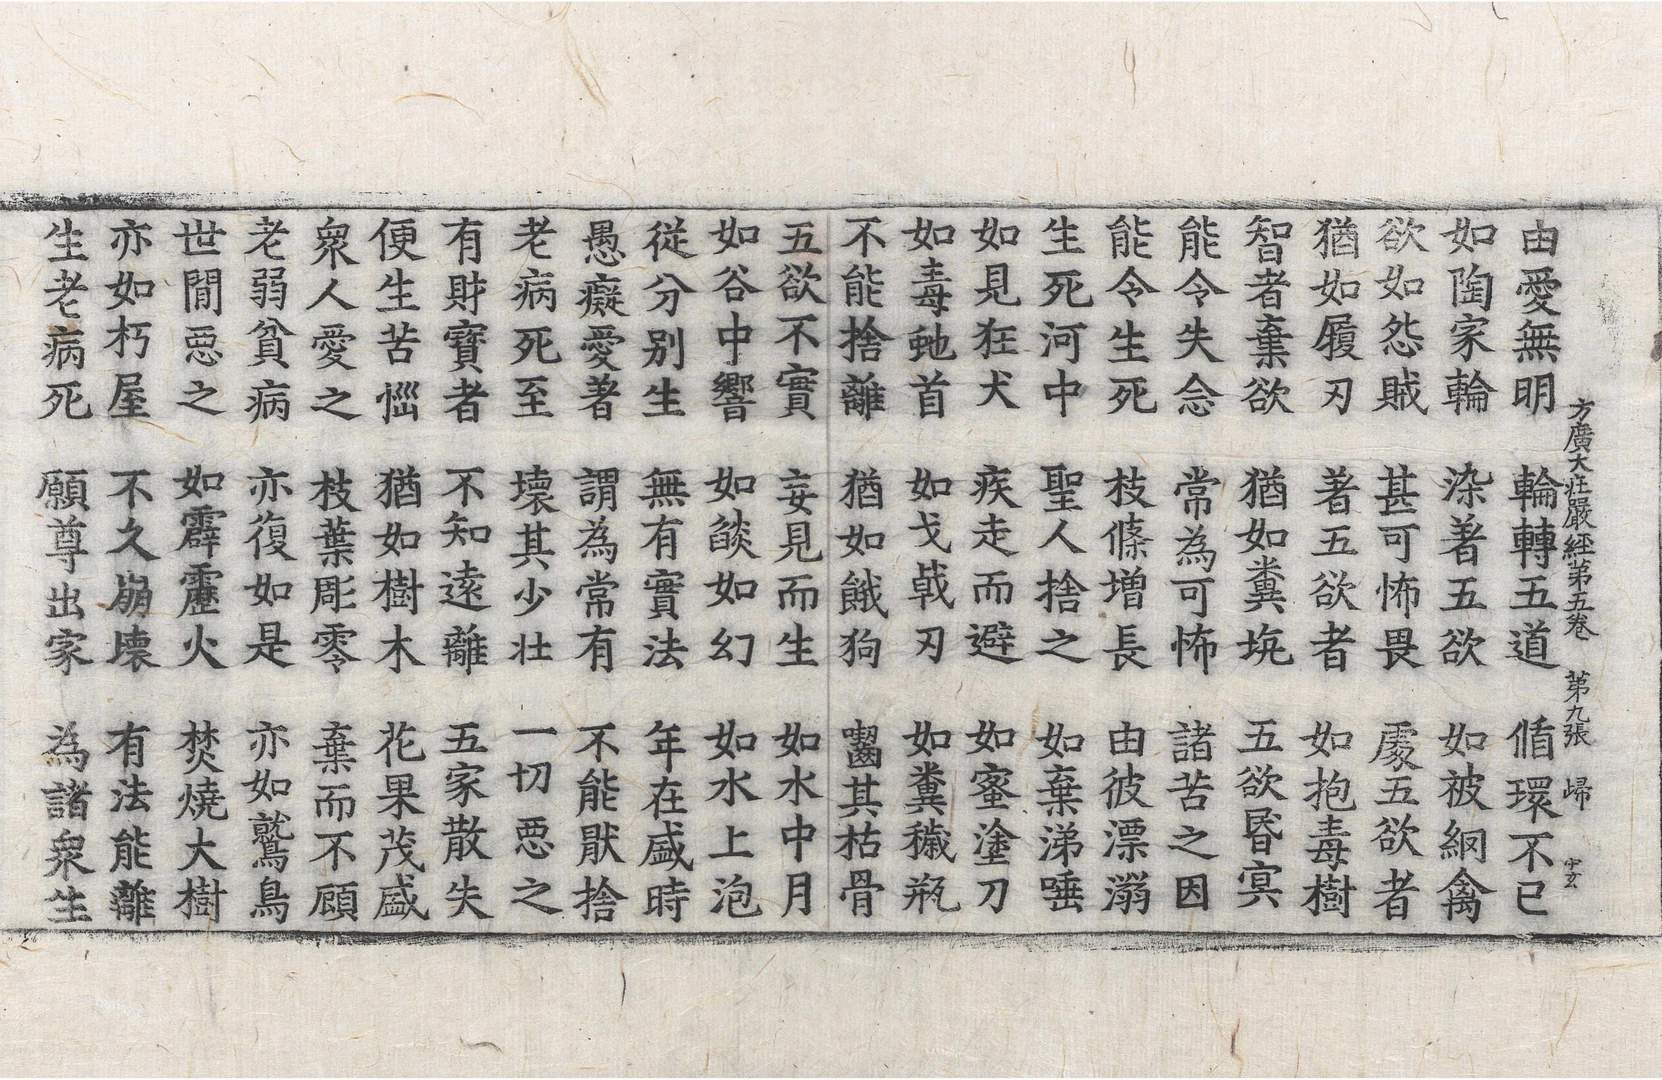 方廣大莊嚴經第五卷 第九張 歸 守玄
由愛無明 輪轉五道 循環不已
如陶家輪 染著五欲 如被䌹禽
欲如怨賊 甚可怖畏 處五欲者
猶如履刃 著五欲者 如抱毒樹
智者棄欲 猶如糞坑 五欲昬冥
能令失念 常為可怖 諸苦之因
能令生死 枝條增長 由彼漂溺
生死河中 聖人捨之 如棄涕唾
如見狂犬 疾走而避 如蜜塗刀
如毒虵首 如戈戟刃 如糞穢瓶
不能捨離 猶如餓狗 嚙其枯骨
五欲不實 妄見而生 如水中月
如谷中響 如燄如幻 如水上泡
從分別生 無有實法 年在盛時
愚癡愛著 謂為常有 不能厭捨
老病死至 壞其少壯 一切惡之
有財寶者 不知遠離 五家散失
便生苦惱 猶如樹木 花果茂盛
衆人愛之 枝葉彫零 棄而不顧
老弱貧病 亦復如是 亦如鷲鳥
世閒惡之 如霹靂火 焚燒大樹
亦如朽屋 不久崩壞 有法能離
生老病死 願尊出家 為諸衆生